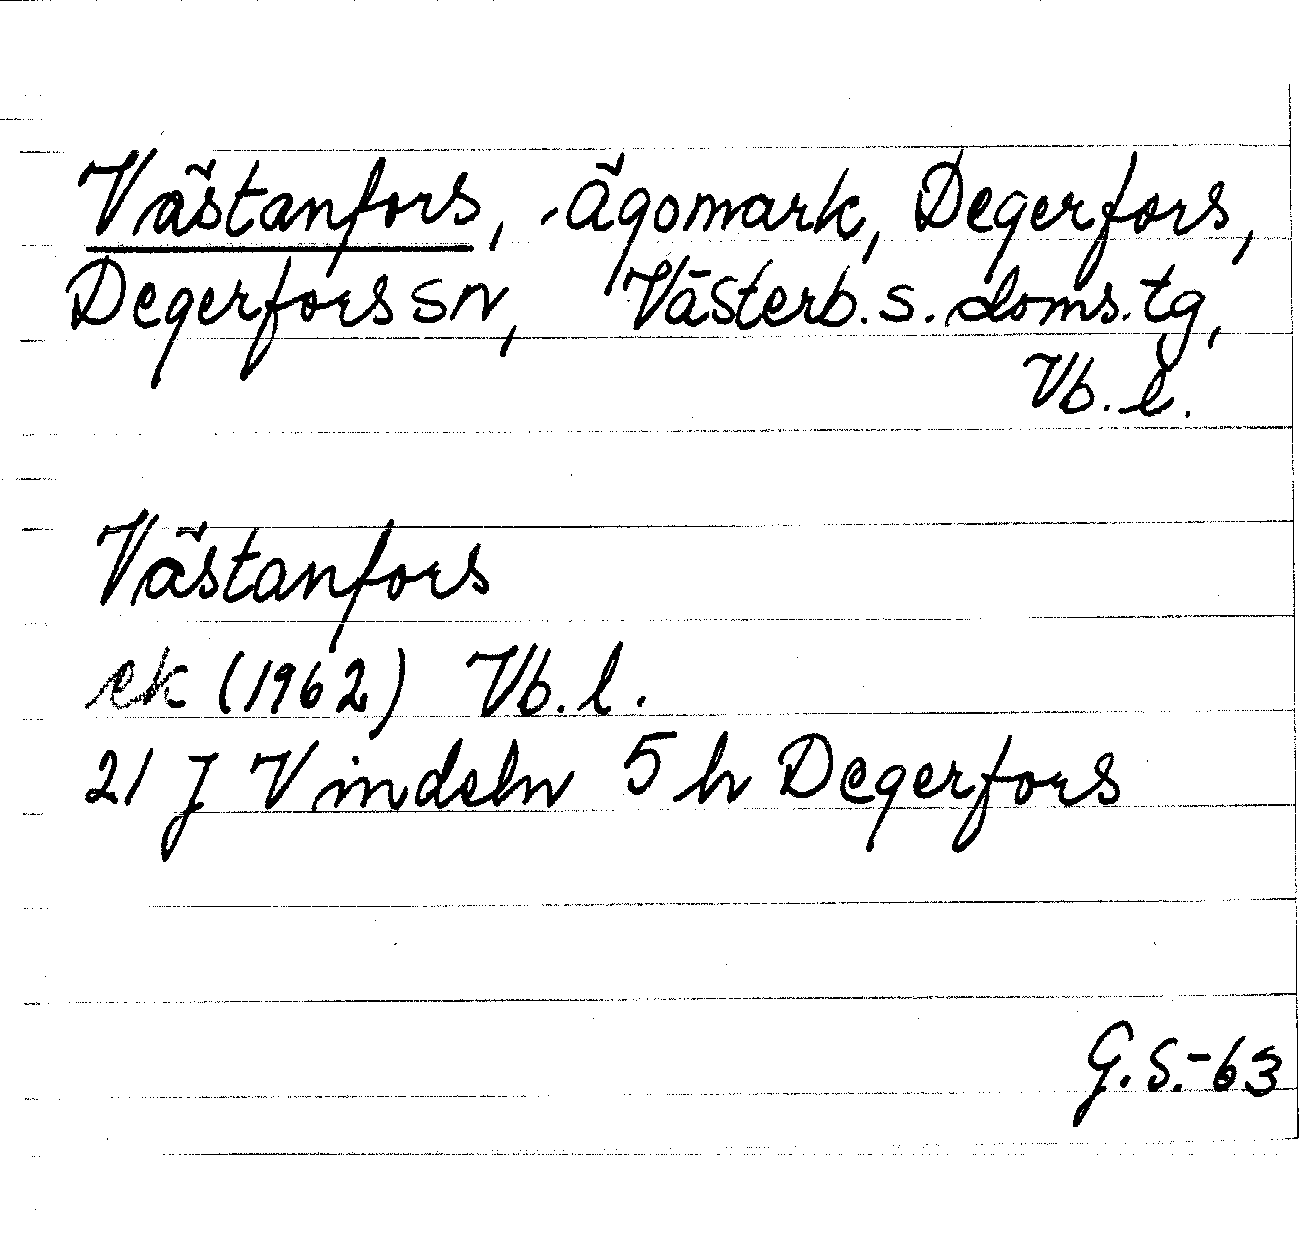 Västanfors, ägomark, Degerfors,
Degerfors sn, Västerb. s. doms. tg,
Vb. l.
Västanfors
ek (1962) Vb. l.
21 J Vindeln 5 h Degerfors
G.S.-63